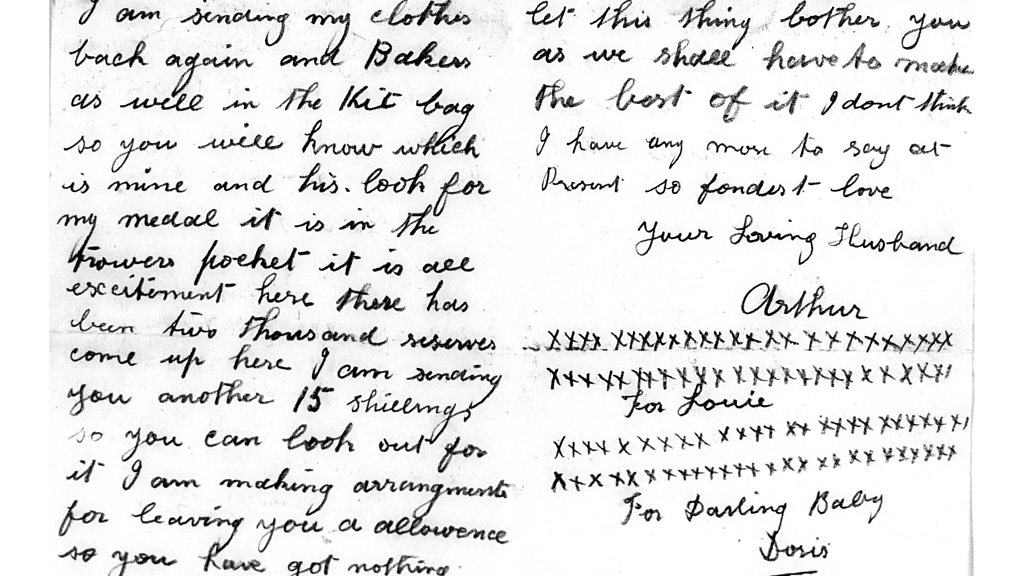 I am sending my clothes
back again and Bakers
as well in the Kit bag
so you will know which
is mine and his. look for
my medal it is in the
trowers pocket it is all
excitement here there has
been two thousand reserves
come up here I am sending
you another 15 shillings
so you can look out for
it I am making arrangments
for leaving you a allowence
so you have got nothing
let this thing bother you
as we shall have to make
the best of it I dont think
I have any more to say at
Present so fondest love
Your Loving Husband
Arthur
xxxx xxxxxxxxxx xx xxxxxxxxxx
xxxxxxxxxxxx xxxxxxxxx x xxxx
For Louie
xxxx x xxxxx xxxx xx xxxxxxxxxx
xxxxxx xxxxxxxxxx xx xx xxxxxxx
For Darling Baby
Doris